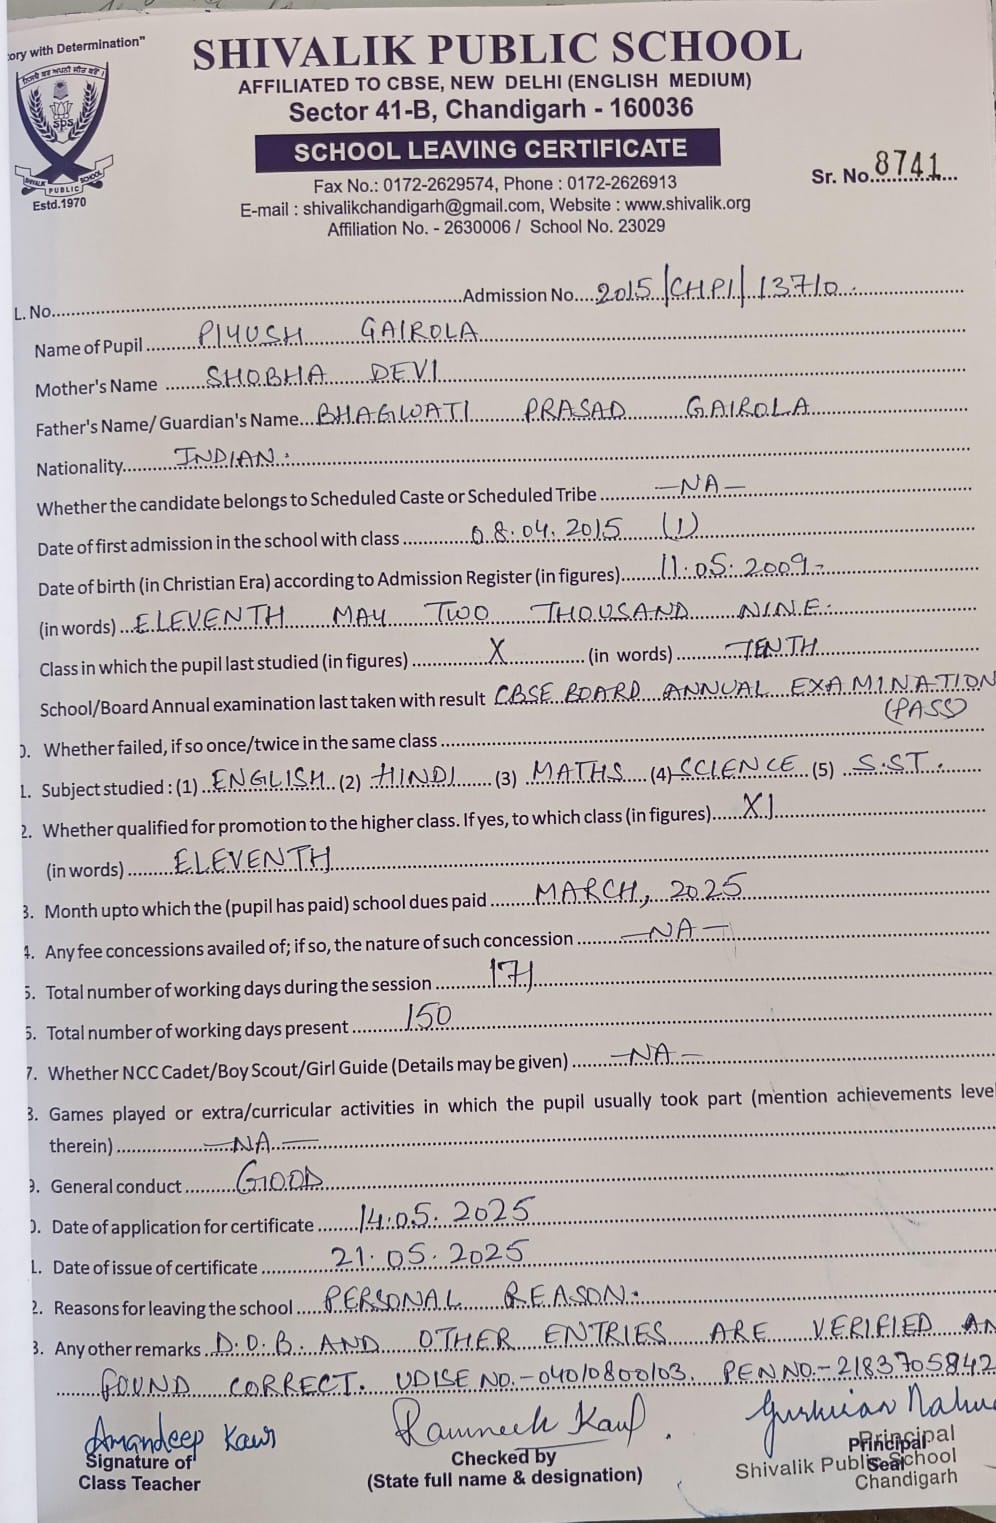 ory with Determination"
SHIVALIK PUBLIC SCHOOL
AFFILIATED TO CBSE, NEW DELHI (ENGLISH MEDIUM)
Sector 41-B, Chandigarh - 160036
SCHOOL LEAVING CERTIFICATE
sps
SHIVALIK PUBLIC SCHOOL
Estd.1970
Sr. No. 8741
Fax No.: 0172-2629574, Phone : 0172-2626913
E-mail : shivalikchandigarh@gmail.com, Website : www.shivalik.org
Affiliation No. - 2630006 / School No. 23029
L. No. Admission No. 2015/CHPI/13710.
Name of Pupil PIYUSH GAIROLA
Mother's Name SHOBHA DEVI
Father's Name/ Guardian's Name BHAGWATI PRASAD GAIROLA
Nationality INDIAN.
Whether the candidate belongs to Scheduled Caste or Scheduled Tribe -NA-
Date of first admission in the school with class 08.04.2015 (I)
Date of birth (in Christian Era) according to Admission Register (in figures) 11.05.2009-
(in words) ELEVENTH MAY TWO THOUSAND NINE.
Class in which the pupil last studied (in figures) X (in words) TENTH
School/Board Annual examination last taken with result CBSE BOARD ANNUAL EXAMINATION
(PASS)
0. Whether failed, if so once/twice in the same class
1. Subject studied : (1) ENGLISH (2) HINDI (3) MATHS (4) SCIENCE (5) S.ST.
2. Whether qualified for promotion to the higher class. If yes, to which class (in figures) XI
(in words) ELEVENTH
3. Month upto which the (pupil has paid) school dues paid MARCH, 2025
4. Any fee concessions availed of; if so, the nature of such concession -NA-
5. Total number of working days during the session 171
6. Total number of working days present 150
7. Whether NCC Cadet/Boy Scout/Girl Guide (Details may be given) -NA-
8. Games played or extra/curricular activities in which the pupil usually took part (mention achievements level
therein) -NA-
9. General conduct GOOD
0. Date of application for certificate 14.05.2025
1. Date of issue of certificate 21.05.2025
2. Reasons for leaving the school PERSONAL REASON.
3. Any other remarks D.O.B. AND OTHER ENTRIES ARE VERIFIED AN
FOUND CORRECT. UDISE NO.-04010800103. PEN NO.-2183705842
Amandeep Kaur
Signature of
Class Teacher
Ramneek Kaur
Checked by
(State full name & designation)
Principal
Seal
Principal
Shivalik Public School
Chandigarh